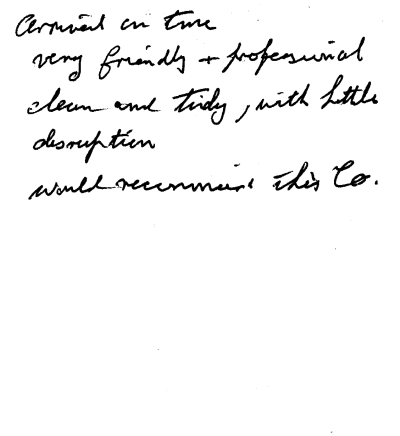 Arrived on time
very friendly + professional
clean and tidy, with little
disruption
would recommend this Co.